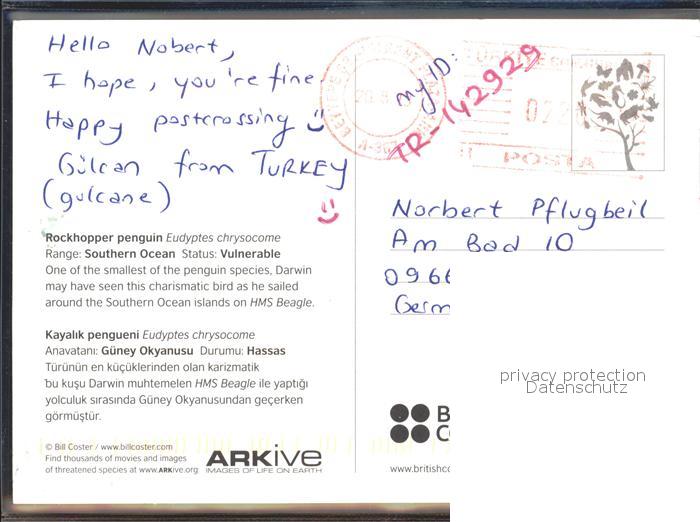 Hello Nobert,
I hope, you're fine.
Happy postcrossing
Gülcan from TURKEY
(gulcane)
my ID:
TR-142929
POSTA
Norbert Pflugbeil
Am Bad 10
Rockhopper penguin Eudyptes chrysocome
Range: Southern Ocean Status: Vulnerable
One of the smallest of the penguin species, Darwin
may have seen this charismatic bird as he sailed
around the Southern Ocean islands on HMS Beagle.
Kayalık pengueni Eudyptes chrysocome
Anavatanı: Güney Okyanusu Durumu: Hassas
Türünün en küçüklerinden olan karizmatik
bu kuşu Darwin muhtemelen HMS Beagle ile yaptığı
yolculuk sırasında Güney Okyanusundan geçerken
görmüştür.
© Bill Coster / www.billcoster.com
Find thousands of movies and images
of threatened species at www.ARKive.org
ARKive
IMAGES OF LIFE ON EARTH
privacy protection
Datenschutz